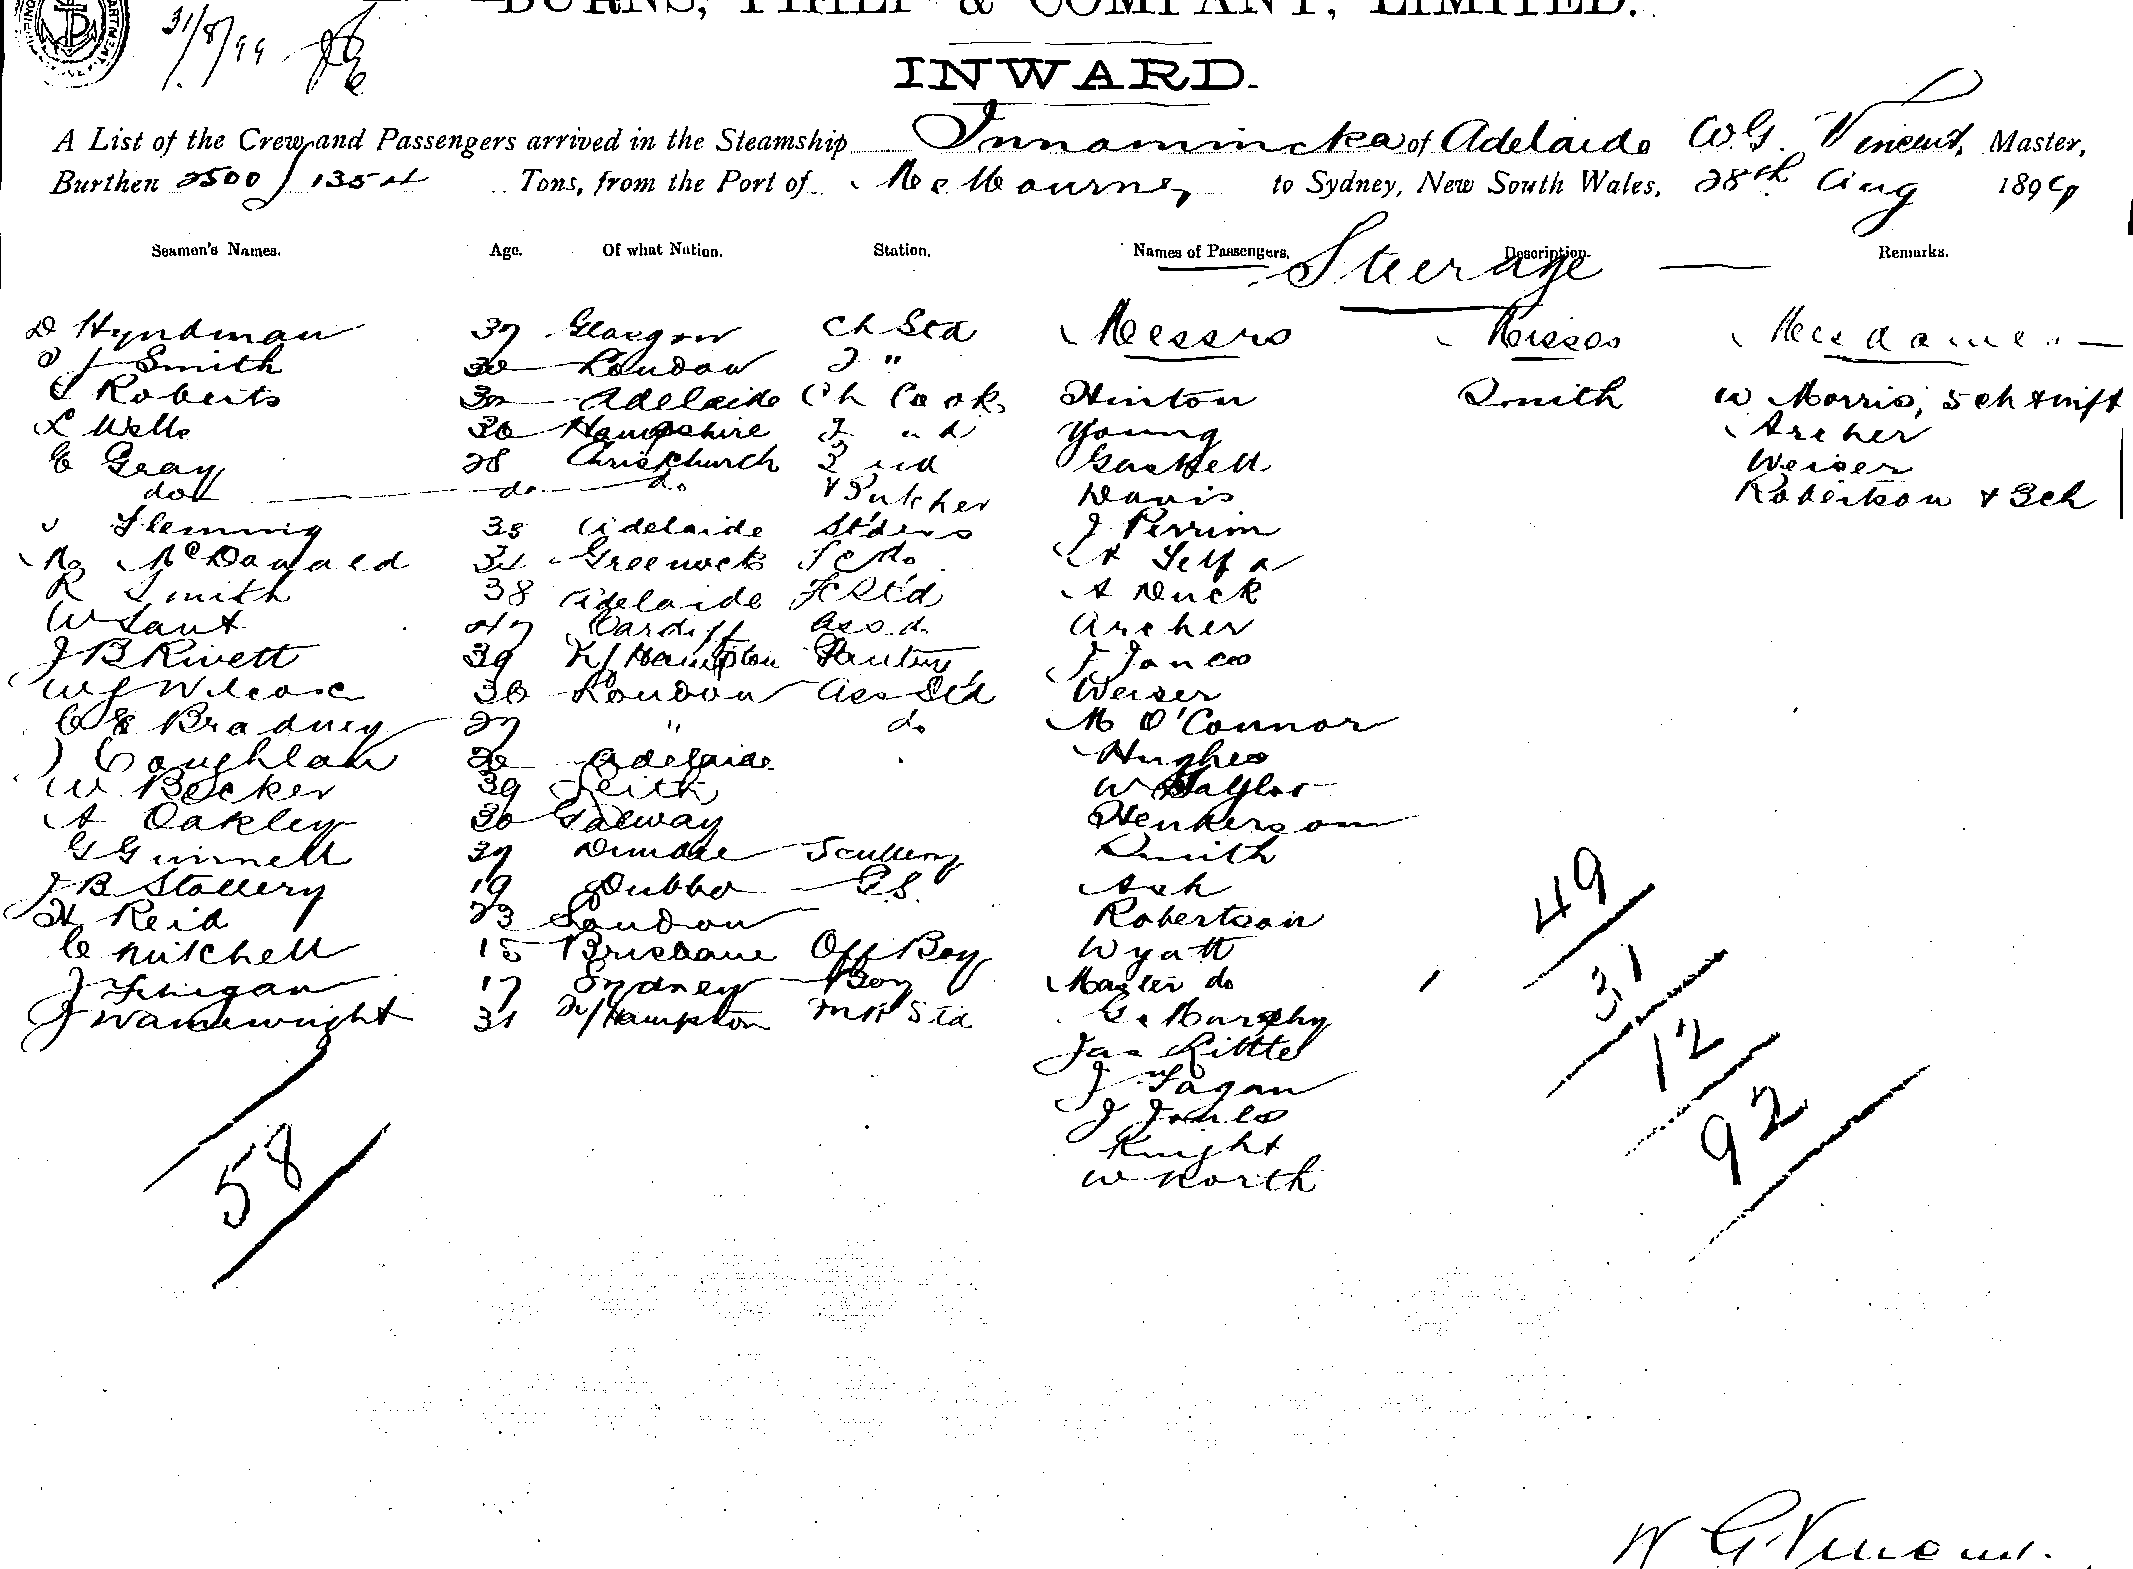 BURNS, PHILP & COMPANY, LIMITED.
31/8/99
INWARD.
A List of the Crew and Passengers arrived in the Steamship Innamincka of Adelaide W G. Vincent, Master,
Burthen 2500/ Tons, from the Port of Melbourne to Sydney, New South Wales, 28th Aug 1899
Seamen's Names. Age. Of what Nation. Station. Names of Passengers. Description. Remarks.
Steerage
D Hyndman 37 Glasgow Ch Std Messrs Misses Mesdames
J Smith 30 London 2 "
Roberts 32 Adelaide Ch Cook Hinton Smith W Morris, 5 ch & inft
L Wells 36 Hampshire 2 nd Young Archer
E Gray 28 Christchurch 3 rd Gaskell Weiser
do do do & Butcher Davis Robertson & 3ch
Fleming 38 Adelaide St'dess J Perrim
McDonald Greenock do A Self
R Smith 38 Adelaide Std A Duck
W Sant 47 Cardiff Archer
J B Rivett 39 Pantry J Jones
W J Wilcox 36 London Ass Std Weiser
C E Bradney 27 " do M O'Connor
J Coughlan Adelaide Hughes
W Becker 39 Leith W Taylor
A Oakley 30 Galway Henkerson
G Ginnell 37 Dundee Scullery Smith
J B Stallery 19 Dubbo G.S. Ash
H Reid 23 London Robertson
C Mitchell 15 Brisbane Off Boy Wyatt
J Finigan 17 Sydney Boy Master do
J Wainewright 31 W/Hampton Std G. Murphy
Jas Little
J Fagan
J Jones
Knight
W North
49
31
12
92
58
W G Vincent.